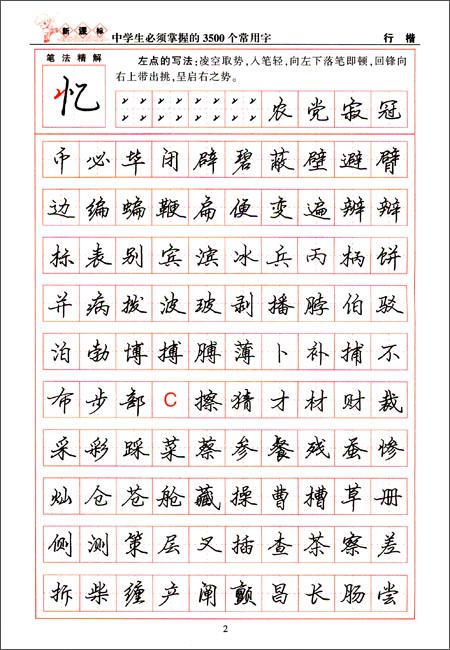 新课标 中学生必须掌握的3500个常用字 行楷
笔法精解
左点的写法:凌空取势,入笔轻,向左下落笔即顿,回锋向
右上带出挑,呈启右之势。
忆
农党寂冠
币必毕闭辟碧蔽壁避臂
边编蝙鞭扁便变遍辨辩
标表别宾滨冰兵丙柄饼
并病拨波玻剥播脖伯驳
泊勃博搏膊薄卜补捕不
布步部C擦猜才材财裁
采彩踩菜蔡参餐残蚕惨
灿仓苍舱藏操曹槽草册
侧测策层叉插查茶察差
拆柴缠产阐颤昌长肠尝
2